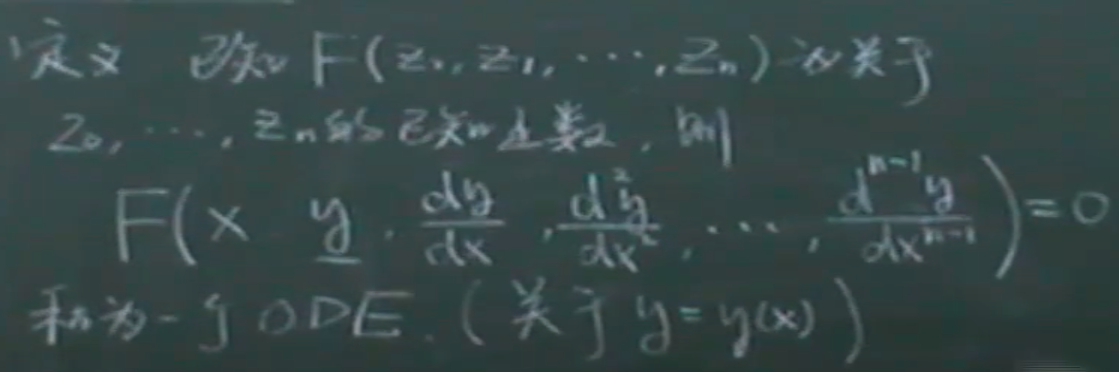 定义 已知 F(z₀, z₁, ⋯, zₙ) 为关于
z₀, ⋯, zₙ的已知函数, 则
F(x y, dy/dx, d²y/dx², ⋯, dⁿ⁻¹y/dxⁿ⁻¹) = 0
称为一个 ODE. (关于 y = y(x))